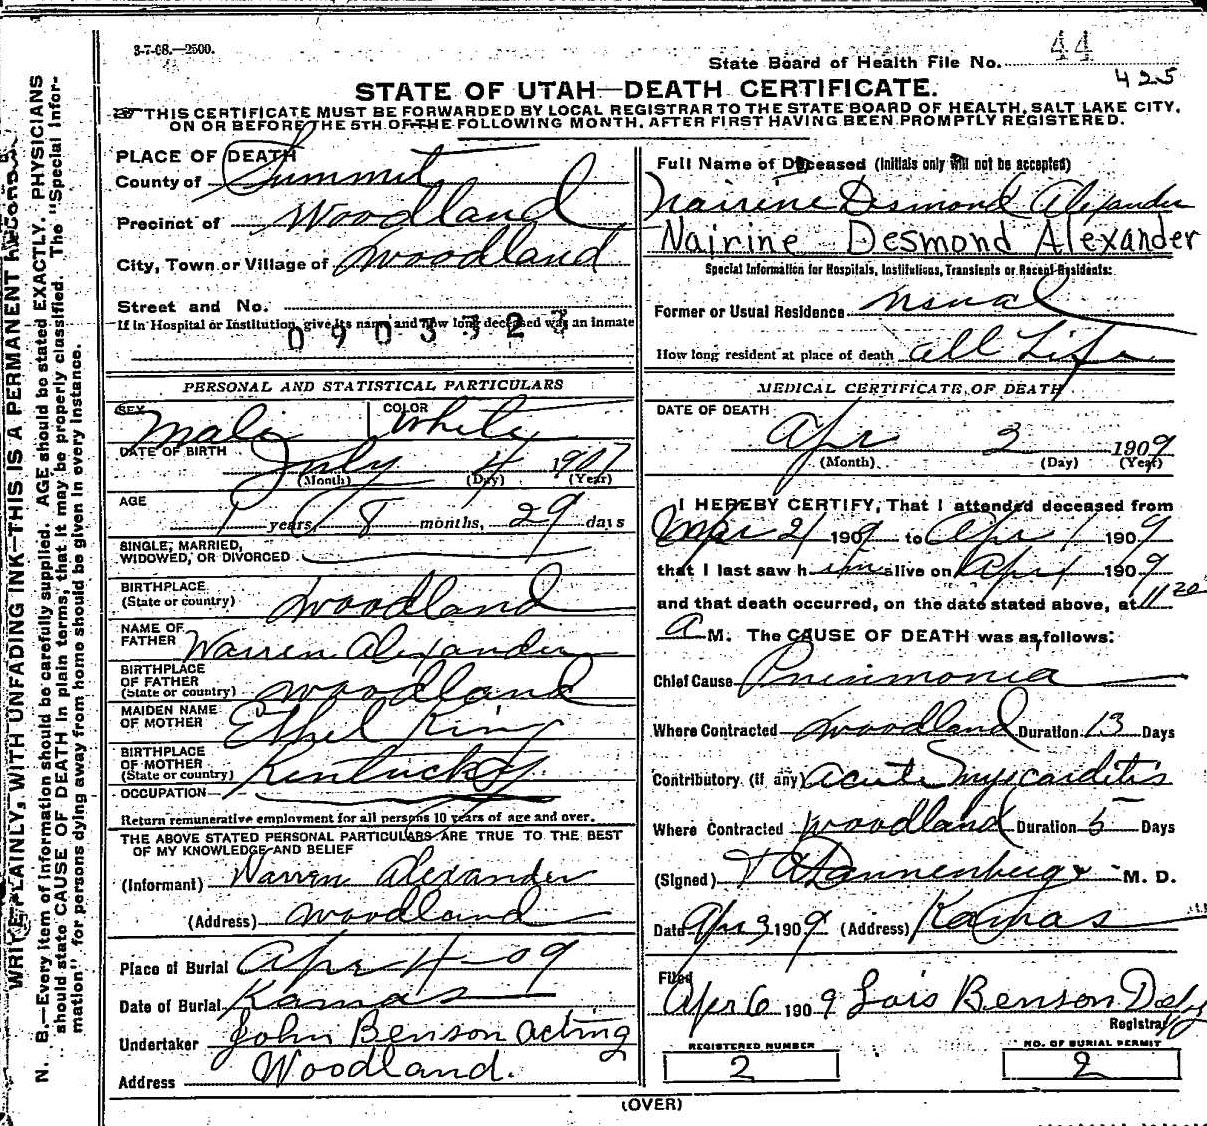 3-7-08.—2500.
State Board of Health File No. 44
425
STATE OF UTAH—DEATH CERTIFICATE.
THIS CERTIFICATE MUST BE FORWARDED BY LOCAL REGISTRAR TO THE STATE BOARD OF HEALTH, SALT LAKE CITY,
ON OR BEFORE THE 5TH OF THE FOLLOWING MONTH, AFTER FIRST HAVING BEEN PROMPTLY REGISTERED.
WRITE PLAINLY, WITH UNFADING INK—THIS IS A PERMANENT RECORD
N. B.—Every item of information should be carefully supplied. AGE should be stated EXACTLY. PHYSICIANS
should state CAUSE OF DEATH in plain terms, that it may be properly classified. The "Special Infor-
mation" for persons dying away from home should be given in every instance.
PLACE OF DEATH
County of Summit
Precinct of Woodland
City, Town or Village of Woodland
Street and No.
If in Hospital or Institution, give its name and how long deceased was an inmate
0 9 0 3 3 2 7
PERSONAL AND STATISTICAL PARTICULARS
SEX Male COLOR White
DATE OF BIRTH July 4 1907
(Month) (Day) (Year)
AGE 1 years 8 months, 29 days
SINGLE, MARRIED,
WIDOWED, OR DIVORCED
BIRTHPLACE
(State or country) Woodland
NAME OF
FATHER Warren Alexander
BIRTHPLACE
OF FATHER
(State or country) Woodland
MAIDEN NAME
OF MOTHER Ethel King
BIRTHPLACE
OF MOTHER
(State or country) Kentucky
OCCUPATION
Return remunerative employment for all persons 10 years of age and over.
THE ABOVE STATED PERSONAL PARTICULARS ARE TRUE TO THE BEST
OF MY KNOWLEDGE AND BELIEF
(Informant) Warren Alexander
(Address) Woodland
Place of Burial Apr 4-09
Date of Burial Kamas
Undertaker John Benson acting
Address Woodland.
Full Name of Deceased (Initials only will not be accepted)
Nairine Desmond Alexander
Nairine Desmond Alexander
Special Information for Hospitals, Institutions, Transients or Recent Residents:
Former or Usual Residence usual
How long resident at place of death all Life
MEDICAL CERTIFICATE OF DEATH
DATE OF DEATH
Apr 2 1909
(Month) (Day) (Year)
I HEREBY CERTIFY, That I attended deceased from
Mar 21 1909 to Apr 1 1909
that I last saw him alive on Apr 1 1909
and that death occurred, on the date stated above, at 11 20
A M. The CAUSE OF DEATH was as follows:
Chief Cause Pneumonia
Where Contracted Woodland Duration 13 Days
Contributory (if any) acute myocarditis
Where Contracted Woodland Duration 5 Days
(Signed) Dannenberg M. D.
Date Apr 3 1909 (Address) Kamas
Filed
Apr 6 1909 Lois Benson Depy
Registrar
REGISTERED NUMBER
2
NO. OF BURIAL PERMIT
2
(OVER)